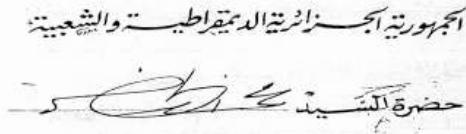 الجمهورية الجزائرية الديمقراطية والشعبية
حضرة السيد